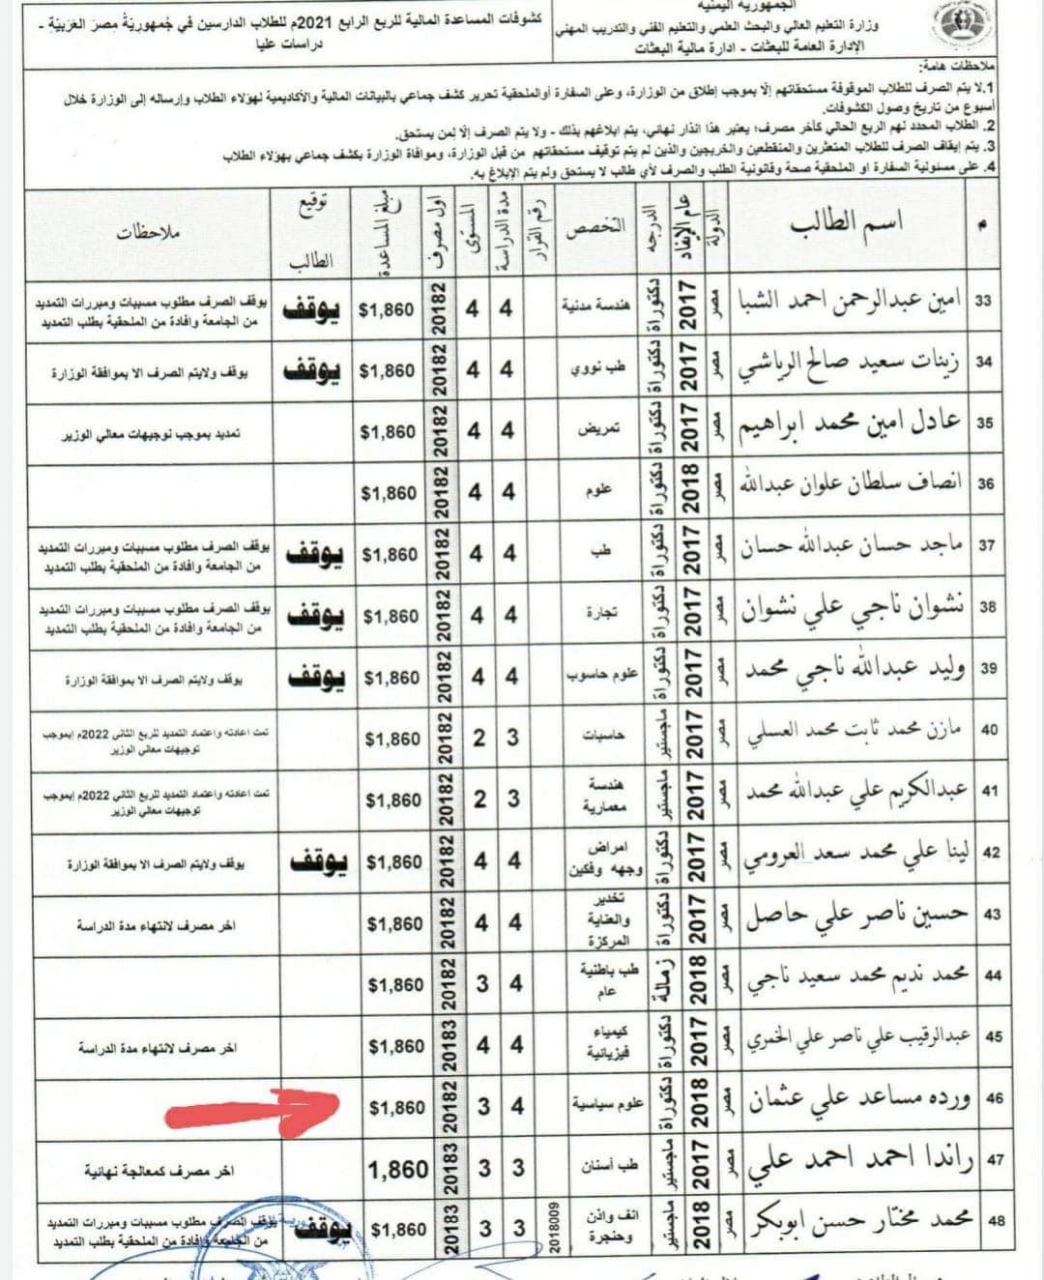 الجمهورية اليمنية
وزارة التعليم العالي والبحث العلمي والتعليم الفني والتدريب المهني
الإدارة العامة للبعثات - ادارة مالية البعثات
كشوفات المساعدة المالية للربع الرابع 2021م للطلاب الدارسين في جُمهوريَّةُ مِصرَ العَرَبيَةِ -
دراسات عليا
ملاحظات هامة:
1.لا يتم الصرف للطلاب الموقوفة مستحقاتهم إلا بموجب إطلاق من الوزارة، وعلى السفارة أوالملحقية تحرير كشف جماعي بالبيانات المالية والأكاديمية لهؤلاء الطلاب وإرساله إلى الوزارة خلال
أسبوع من تاريخ وصول الكشوفات.
2. الطلاب المحدد لهم الربع الحالي كآخر مصرف؛ يعتبر هذا انذار نهائي، يتم ابلاغهم بذلك - ولا يتم الصرف إلا لمن يستحق.
3. يتم إيقاف الصرف للطلاب المتعثرين والمنقطعين والخريجين والذين لم يتم توقيف مستحقاتهم من قبل الوزارة، وموافاة الوزارة بكشف جماعي بهؤلاء الطلاب
4. على مسئولية السفارة او الملحقية صحة وقانونية الطلب والصرف لأي طالب لا يستحق ولم يتم الإبلاغ به.
م اسم الطالب الدولة عام الإيفاد الدرجه التخصص رقم القرار مدة الدراسة المستوى اول مصرف مبلغ المساعدة توقيع الطالب ملاحظات
33 امين عبدالرحمن احمد الشبا مصر 2017 دكتوراة هندسة مدنية 4 4 20182 $1,860 يوقف يوقف الصرف مطلوب مسببات ومبررات التمديد من الجامعة وافادة من الملحقية بطلب التمديد
34 زينات سعيد صالح الرباشي مصر 2017 دكتوراة طب نووي 4 4 20182 $1,860 يوقف يوقف ولايتم الصرف الا بموافقة الوزارة
35 عادل امين محمد ابراهيم مصر 2017 دكتوراة تمريض 4 4 20182 $1,860 تمديد بموجب توجيهات معالي الوزير
36 انصاف سلطان علوان عبدالله مصر 2018 دكتوراة علوم 4 4 20182 $1,860
37 ماجد حسان عبدالله حسان مصر 2017 دكتوراة طب 4 4 20182 $1,860 يوقف يوقف الصرف مطلوب مسببات ومبررات التمديد من الجامعة وافادة من الملحقية بطلب التمديد
38 نشوان ناجي علي نشوان مصر 2017 دكتوراة تجارة 4 4 20182 $1,860 يوقف يوقف الصرف مطلوب مسببات ومبررات التمديد من الجامعة وافادة من الملحقية بطلب التمديد
39 وليد عبدالله ناجي محمد مصر 2017 دكتوراة علوم حاسوب 4 4 20182 $1,860 يوقف يوقف ولايتم الصرف الا بموافقة الوزارة
40 مازن محمد ثابت محمد العسلي مصر 2017 ماجستير حاسبات 3 2 20182 $1,860 تمت اعادته واعتماد التمديد للربع الثاني 2022م إبموجب توجيهات معالي الوزير
41 عبدالكريم علي عبدالله محمد مصر 2017 ماجستير هندسة معمارية 3 2 20182 $1,860 تمت اعادته واعتماد التمديد للربع الثاني 2022م إبموجب توجيهات معالي الوزير
42 لينا علي محمد سعد العرومي مصر 2017 دكتوراة امراض وجهه وفكين 4 4 20182 $1,860 يوقف يوقف ولايتم الصرف الا بموافقة الوزارة
43 حسين ناصر علي حاصل مصر 2017 دكتوراة تخدير والعناية المركزة 4 4 20182 $1,860 اخر مصرف لانتهاء مدة الدراسة
44 محمد نديم محمد سعيد ناجي مصر 2018 زمالة طب باطنية عام 4 3 20182 $1,860
45 عبدالرقيب علي ناصر علي الخمري مصر 2017 دكتوراة كيمياء فيزيائية 4 4 20183 $1,860 اخر مصرف لانتهاء مدة الدراسة
46 ورده مساعد علي عثمان مصر 2018 دكتوراة علوم سياسية 4 3 20182 $1,860
47 راندا احمد احمد علي مصر 2017 ماجستير طب أسنان 3 3 20183 1,860 اخر مصرف كمعالجة نهائية
48 محمد مختار حسن ابوبكر مصر 2018 ماجستير انف واذن وحنجرة 2018009 3 3 20183 $1,860 يوقف يوقف الصرف مطلوب مسببات ومبررات التمديد من الجامعة وافادة من الملحقية بطلب التمديد